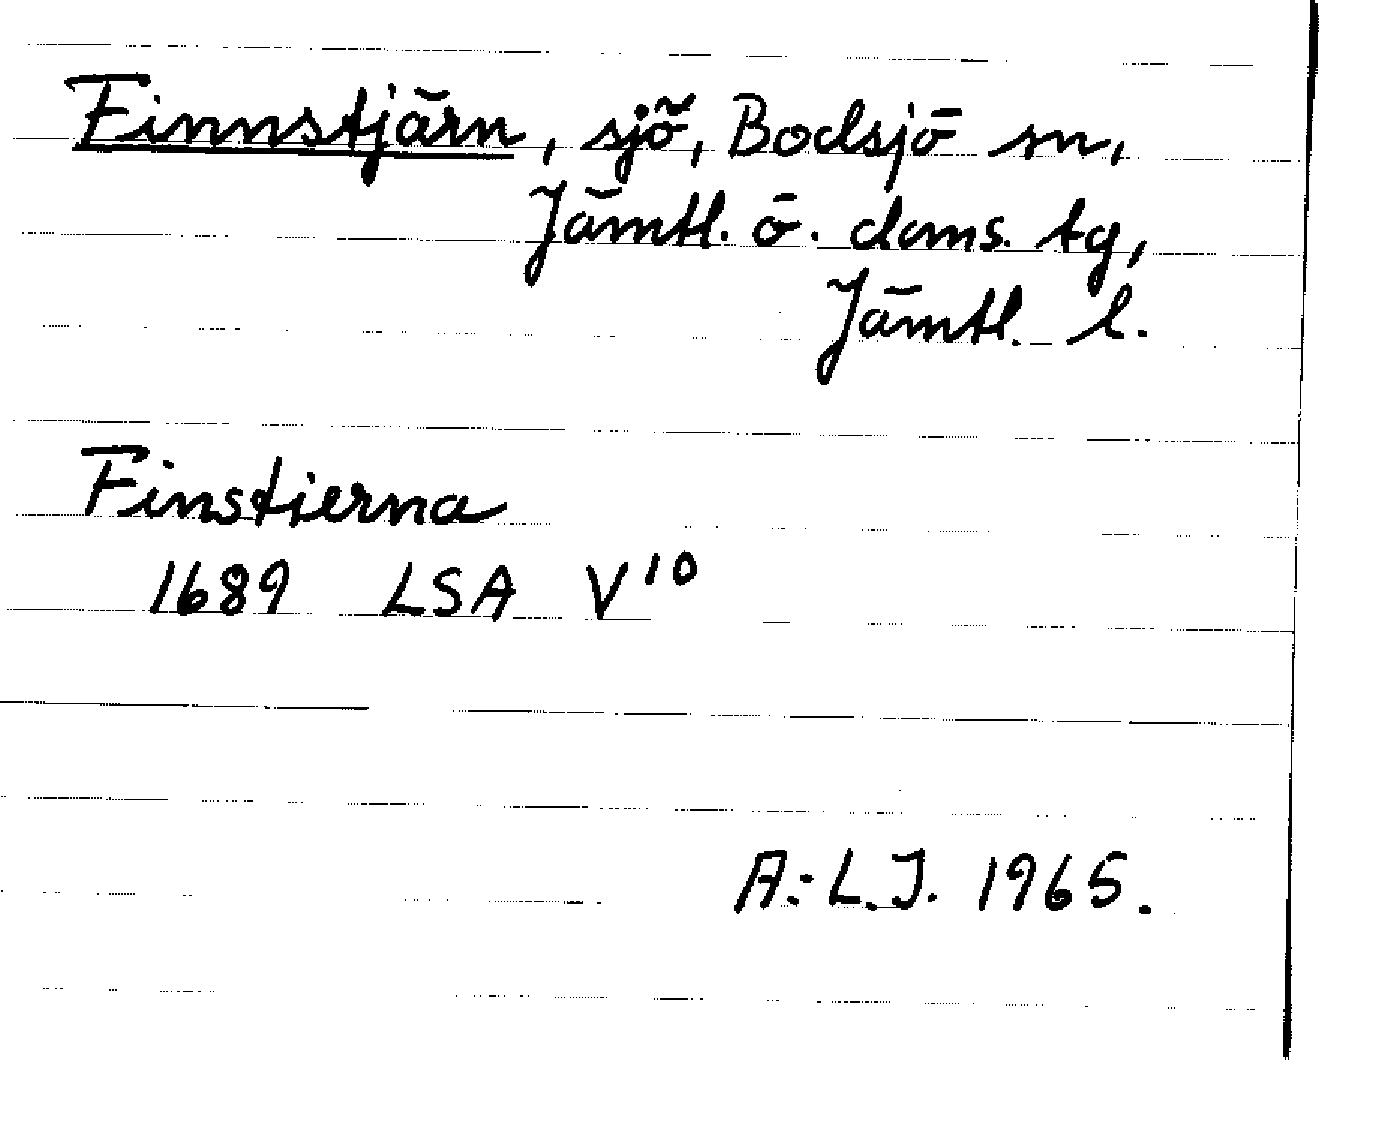 Finnstjärn, sjö, Bodsjö sn,
Jämtl. ö. doms. tg,
Jämtl. l.
Finstierna
1689 LSA V¹⁰
A.-L.J. 1965.